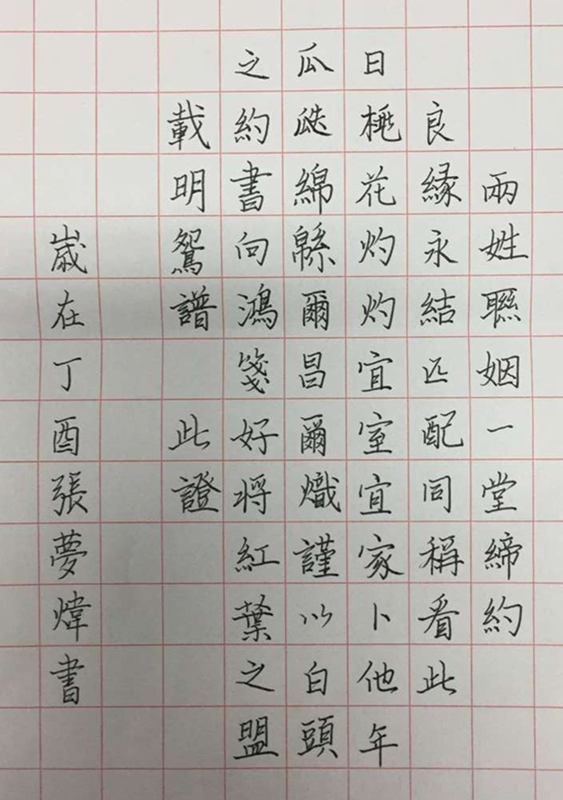 兩姓聯姻一堂締約
良緣永結匹配同稱看此
日桃花灼灼宜室宜家卜他年
瓜瓞綿緜爾昌爾熾謹以白頭
之約書向鴻箋好將紅葉之盟
載明鴛譜此證
嵗在丁酉張夢煒書